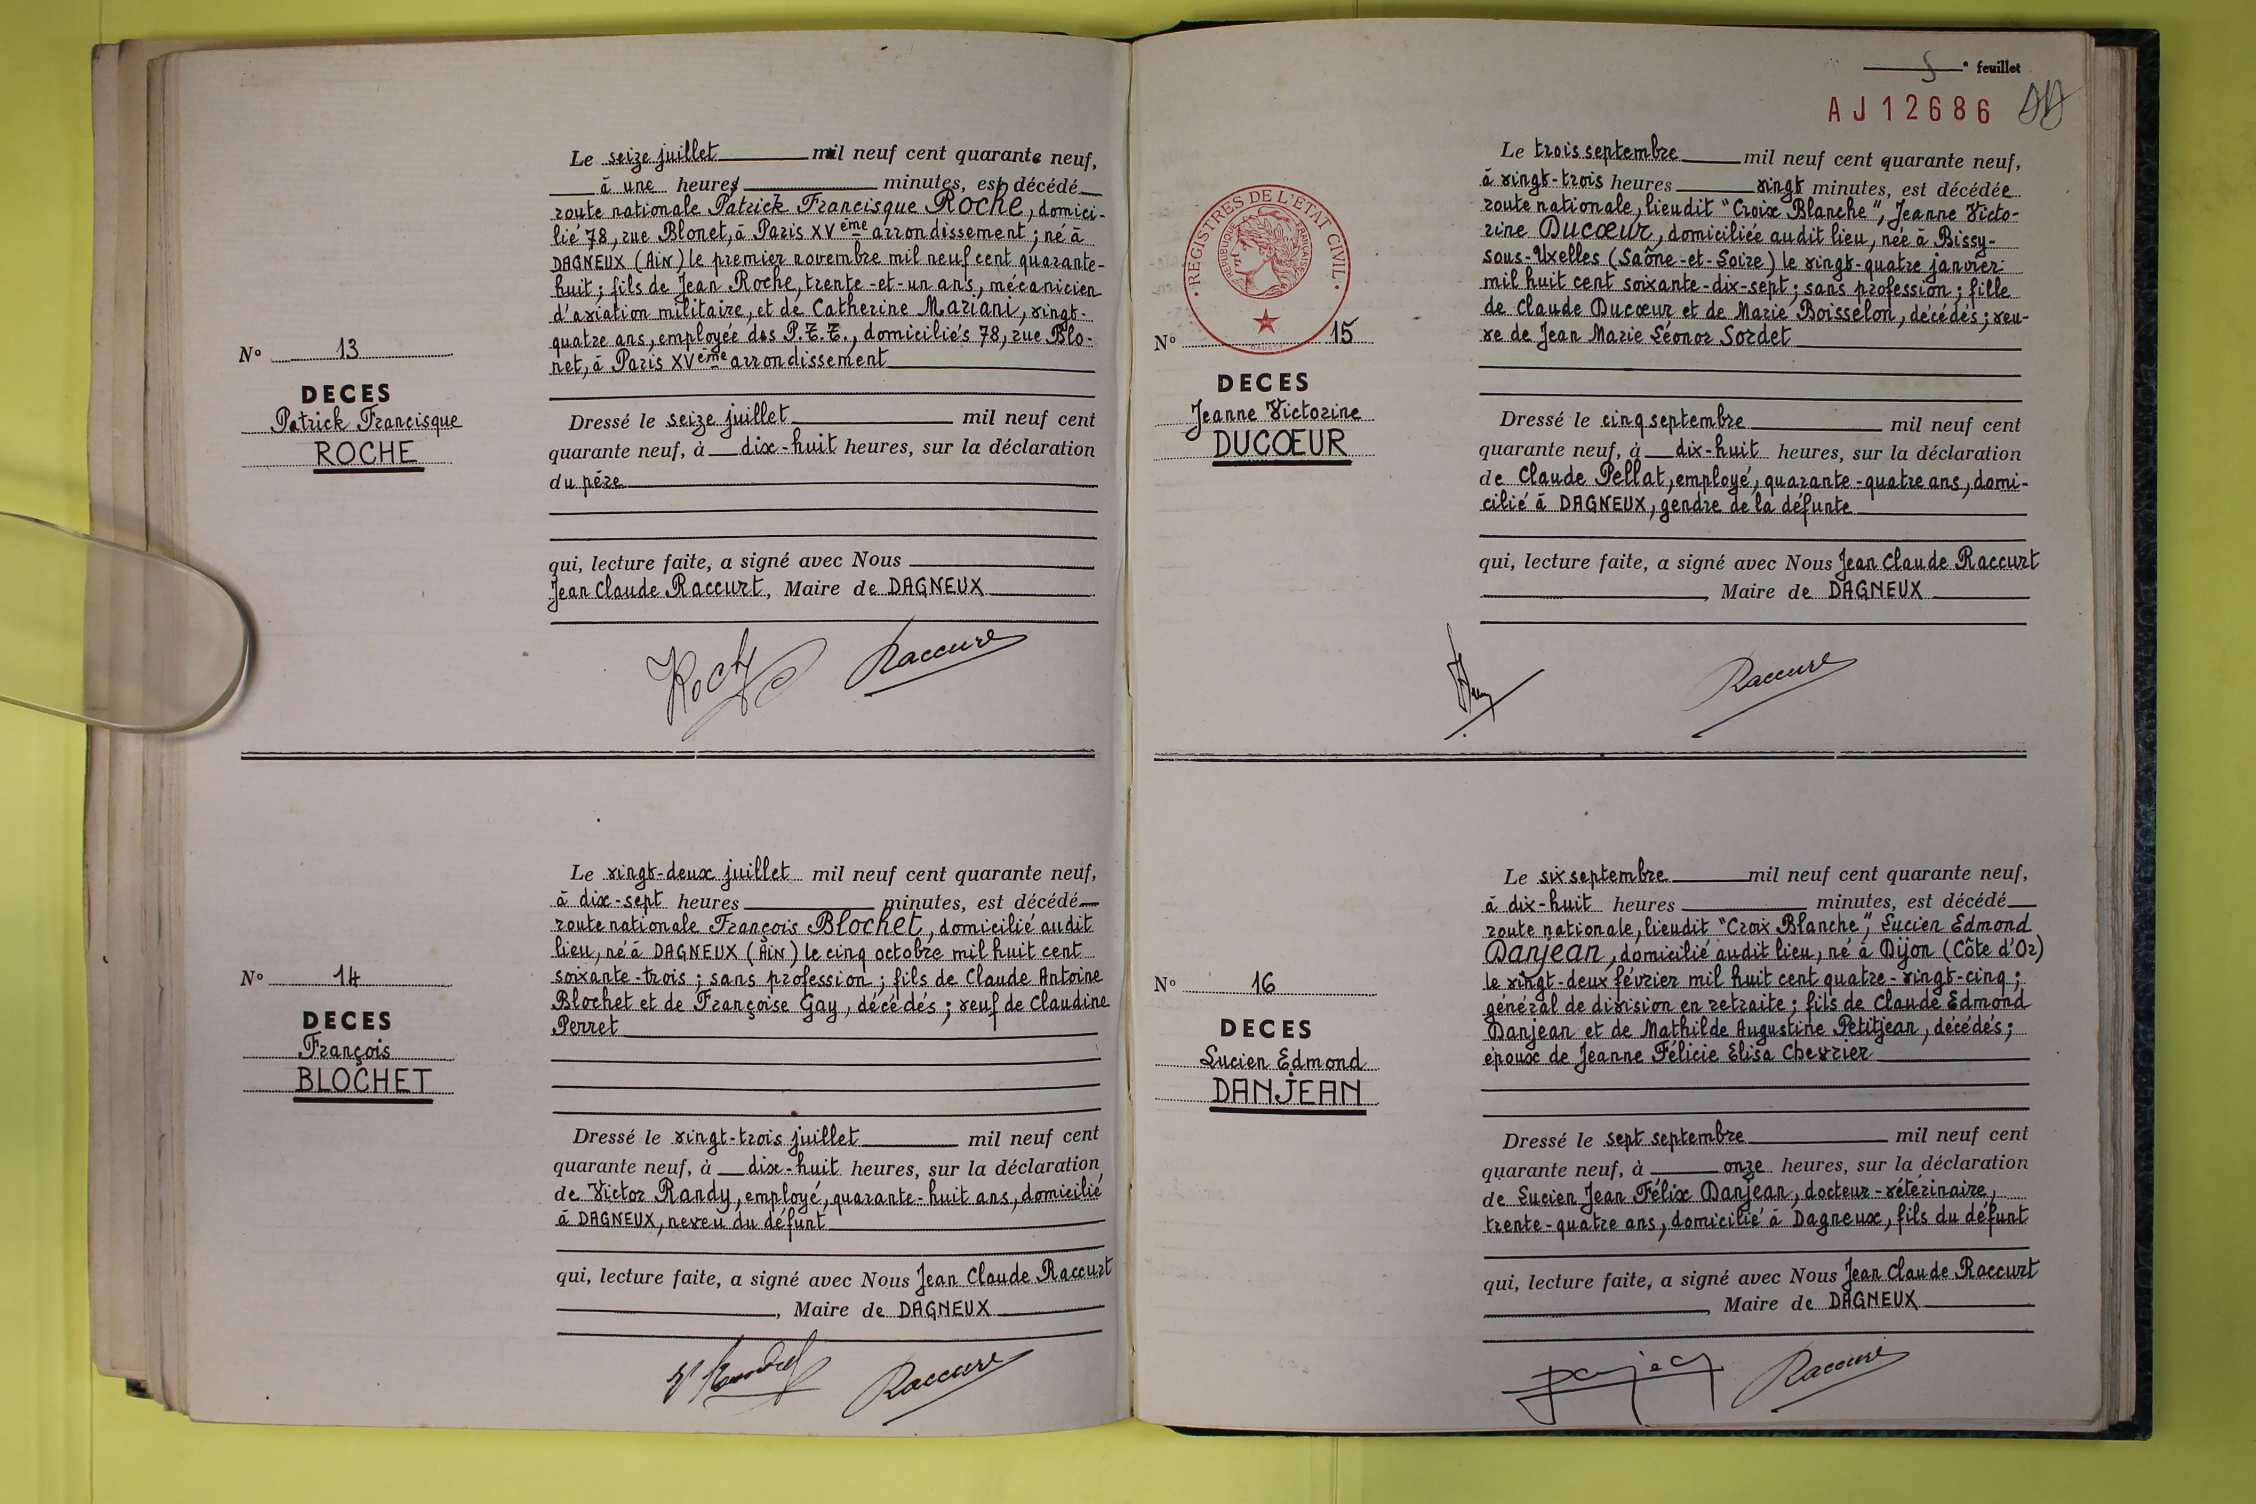 Le seize juillet mil neuf cent quarante neuf,
à une heures minutes, est décédé
route nationale Patrick Francisque Roche, domici-
lié 78, rue Blonet, à Paris XVème arrondissement ; né à
DAGNEUX (AIN) le premier novembre mil neuf cent quarante-
huit ; fils de Jean Roche, trente-et-un ans, mécanicien
d'aviation militaire, et de Catherine Mariani, vingt-
quatre ans, employée des P.T.T., domiciliés 78, rue Blo-
net, à Paris XVème arrondissement
N° 13
DECES
Patrick Francisque
ROCHE
Dressé le seize juillet mil neuf cent
quarante neuf, à dix-huit heures, sur la déclaration
du père
qui, lecture faite, a signé avec Nous
Jean Claude Raccurt, Maire de DAGNEUX
Raccurt
Le vingt-deux juillet mil neuf cent quarante neuf,
à dix-sept heures minutes, est décédé
route nationale François Blochet, domicilié audit
lieu, né à DAGNEUX (AIN) le cinq octobre mil huit cent
soixante-trois ; sans profession ; fils de Claude Antoine
Blochet et de Françoise Gay, décédés ; veuf de Claudine
Perret
N° 14
DECES
François
BLOCHET
Dressé le vingt-trois juillet mil neuf cent
quarante neuf, à dix-huit heures, sur la déclaration
de Victor Randy, employé, quarante-huit ans, domicilié
à DAGNEUX, neveu du défunt
qui, lecture faite, a signé avec Nous Jean Claude Raccurt
, Maire de DAGNEUX
Raccurt
5e feuillet
AJ12686
REGISTRES DE L'ÉTAT CIVIL
REPUBLIQUE FRANÇAISE
Le trois septembre mil neuf cent quarante neuf,
à vingt-trois heures vingt minutes, est décédée
route nationale, lieudit "Croix Blanche", Jeanne Victo-
rine Ducœur, domiciliée audit lieu, née à Bissy-
sous-Uxelles (Saône-et-Loire) le vingt-quatre janvier
mil huit cent soixante-dix-sept ; sans profession ; fille
de Claude Ducœur et de Marie Boisselon, décédés ; veu-
ve de Jean Marie Léonor Sordet
N° 15
DECES
Jeanne Victorine
DUCŒUR
Dressé le cinq septembre mil neuf cent
quarante neuf, à dix-huit heures, sur la déclaration
de Claude Pellat, employé, quarante-quatre ans, domi-
cilié à DAGNEUX, gendre de la défunte
qui, lecture faite, a signé avec Nous Jean Claude Raccurt
, Maire de DAGNEUX
Raccurt
Le six septembre mil neuf cent quarante neuf,
à dix-huit heures minutes, est décédé
route nationale, lieudit "Croix Blanche", Lucien Edmond
Danjean, domicilié audit lieu, né à Dijon (Côte d'Or)
le vingt-deux février mil huit cent quatre-vingt-cinq ;
général de division en retraite ; fils de Claude Edmond
Danjean et de Mathilde Augustine Petitjean, décédés ;
époux de Jeanne Félicie Elisa Chevrier
N° 16
DECES
Lucien Edmond
DANJEAN
Dressé le sept septembre mil neuf cent
quarante neuf, à onze heures, sur la déclaration
de Lucien Jean Félix Danjean, docteur-vétérinaire,
trente-quatre ans, domicilié à Dagneux, fils du défunt
qui, lecture faite, a signé avec Nous Jean Claude Raccurt
, Maire de DAGNEUX
Raccurt